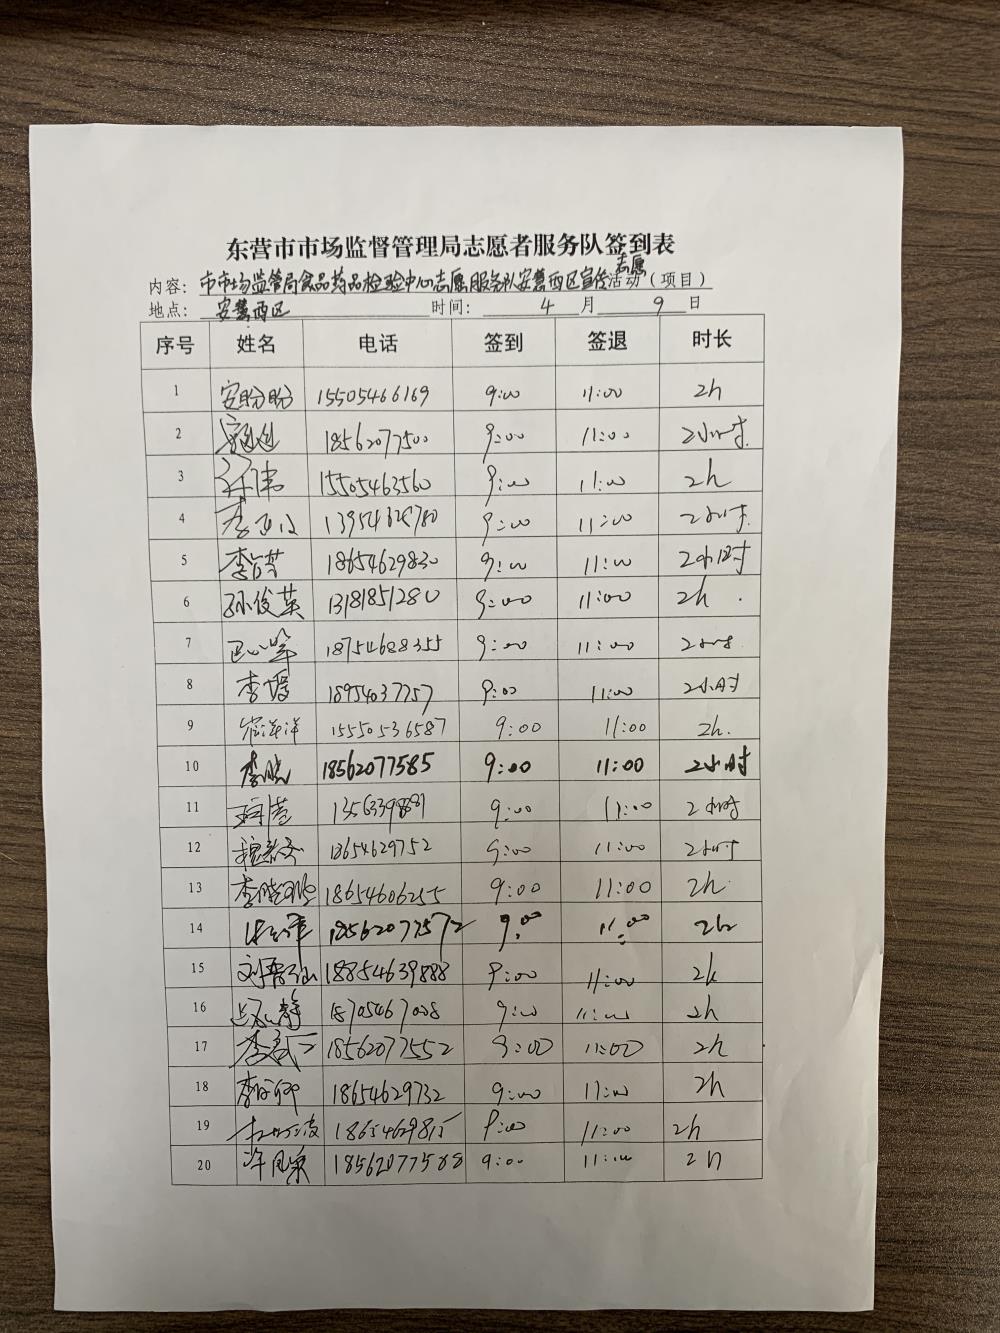 东营市市场监督管理局志愿者服务队签到表
志愿
内容：市市场监管局食品药品检验中心志愿服务队安慧西区宣传活动（项目）
地点：安慧西区 时间：4月9日
序号 姓名 电话 签到 签退 时长
1 安盼盼 15505466169 9:00 11:00 2h
2 18562077500 9:00 11:00 2小时.
3 15505463560 9:00 11:00 2h
4 李 9:00 11:00 2小时
5 李 18654629830 9:00 11:00 2小时
6 孙俊英 13181851280 9:00 11:00 2h.
7 18754688355 9:00 11:00 2小时
8 李 18954037757 9:00 11:00 2小时
9 崔洋洋 15550536587 9:00 11:00 2h.
10 李晓 18562077585 9:00 11:00 2小时
11 9:00 11:00 2小时
12 13654629752 9:00 11:00 2小时
13 李晓 18654606255 9:00 11:00 2h
14 18562077572 9:00 11:00 2h
15 刘 18854639888 9:00 11:00 2h
16 静 18705467008 9:00 11:00 2h
17 李 18562077552 9:00 11:00 2h
18 李 18654629732 9:00 11:00 2h
19 18654629815 9:00 11:00 2h
20 许 18562077588 9:00 11:00 2h